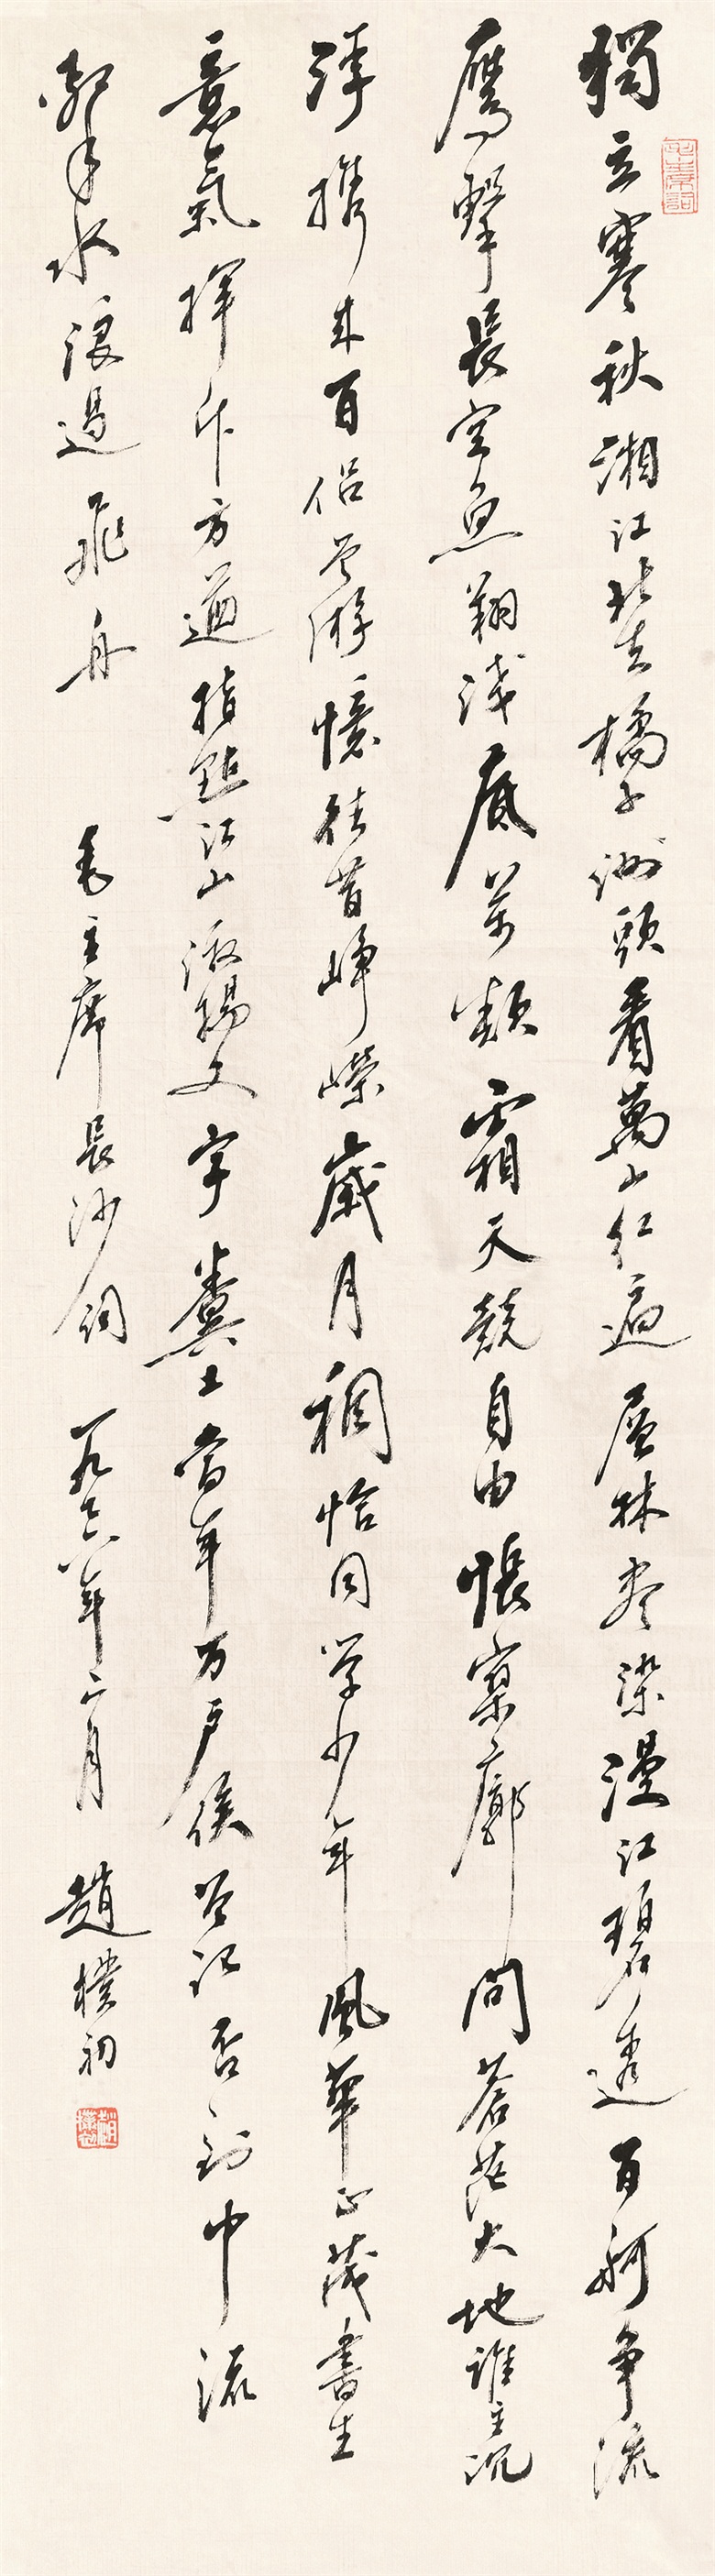 獨立寒秋湘江北去橘子洲頭看萬山紅遍層林尽染漫江碧透百舸争流
鷹擊長空魚翔淺底萬類霜天競自由悵寥廓問蒼茫大地誰主沉
浮携来百侣曾游憶往昔崢嶸歲月稠恰同学少年風華正茂書生
意氣揮斥方遒指點江山激揚文字糞土當年万戶侯曾記否到中流
擊水浪遏飛舟 毛主席長沙詞 一九七六年二月 趙樸初
趙樸初